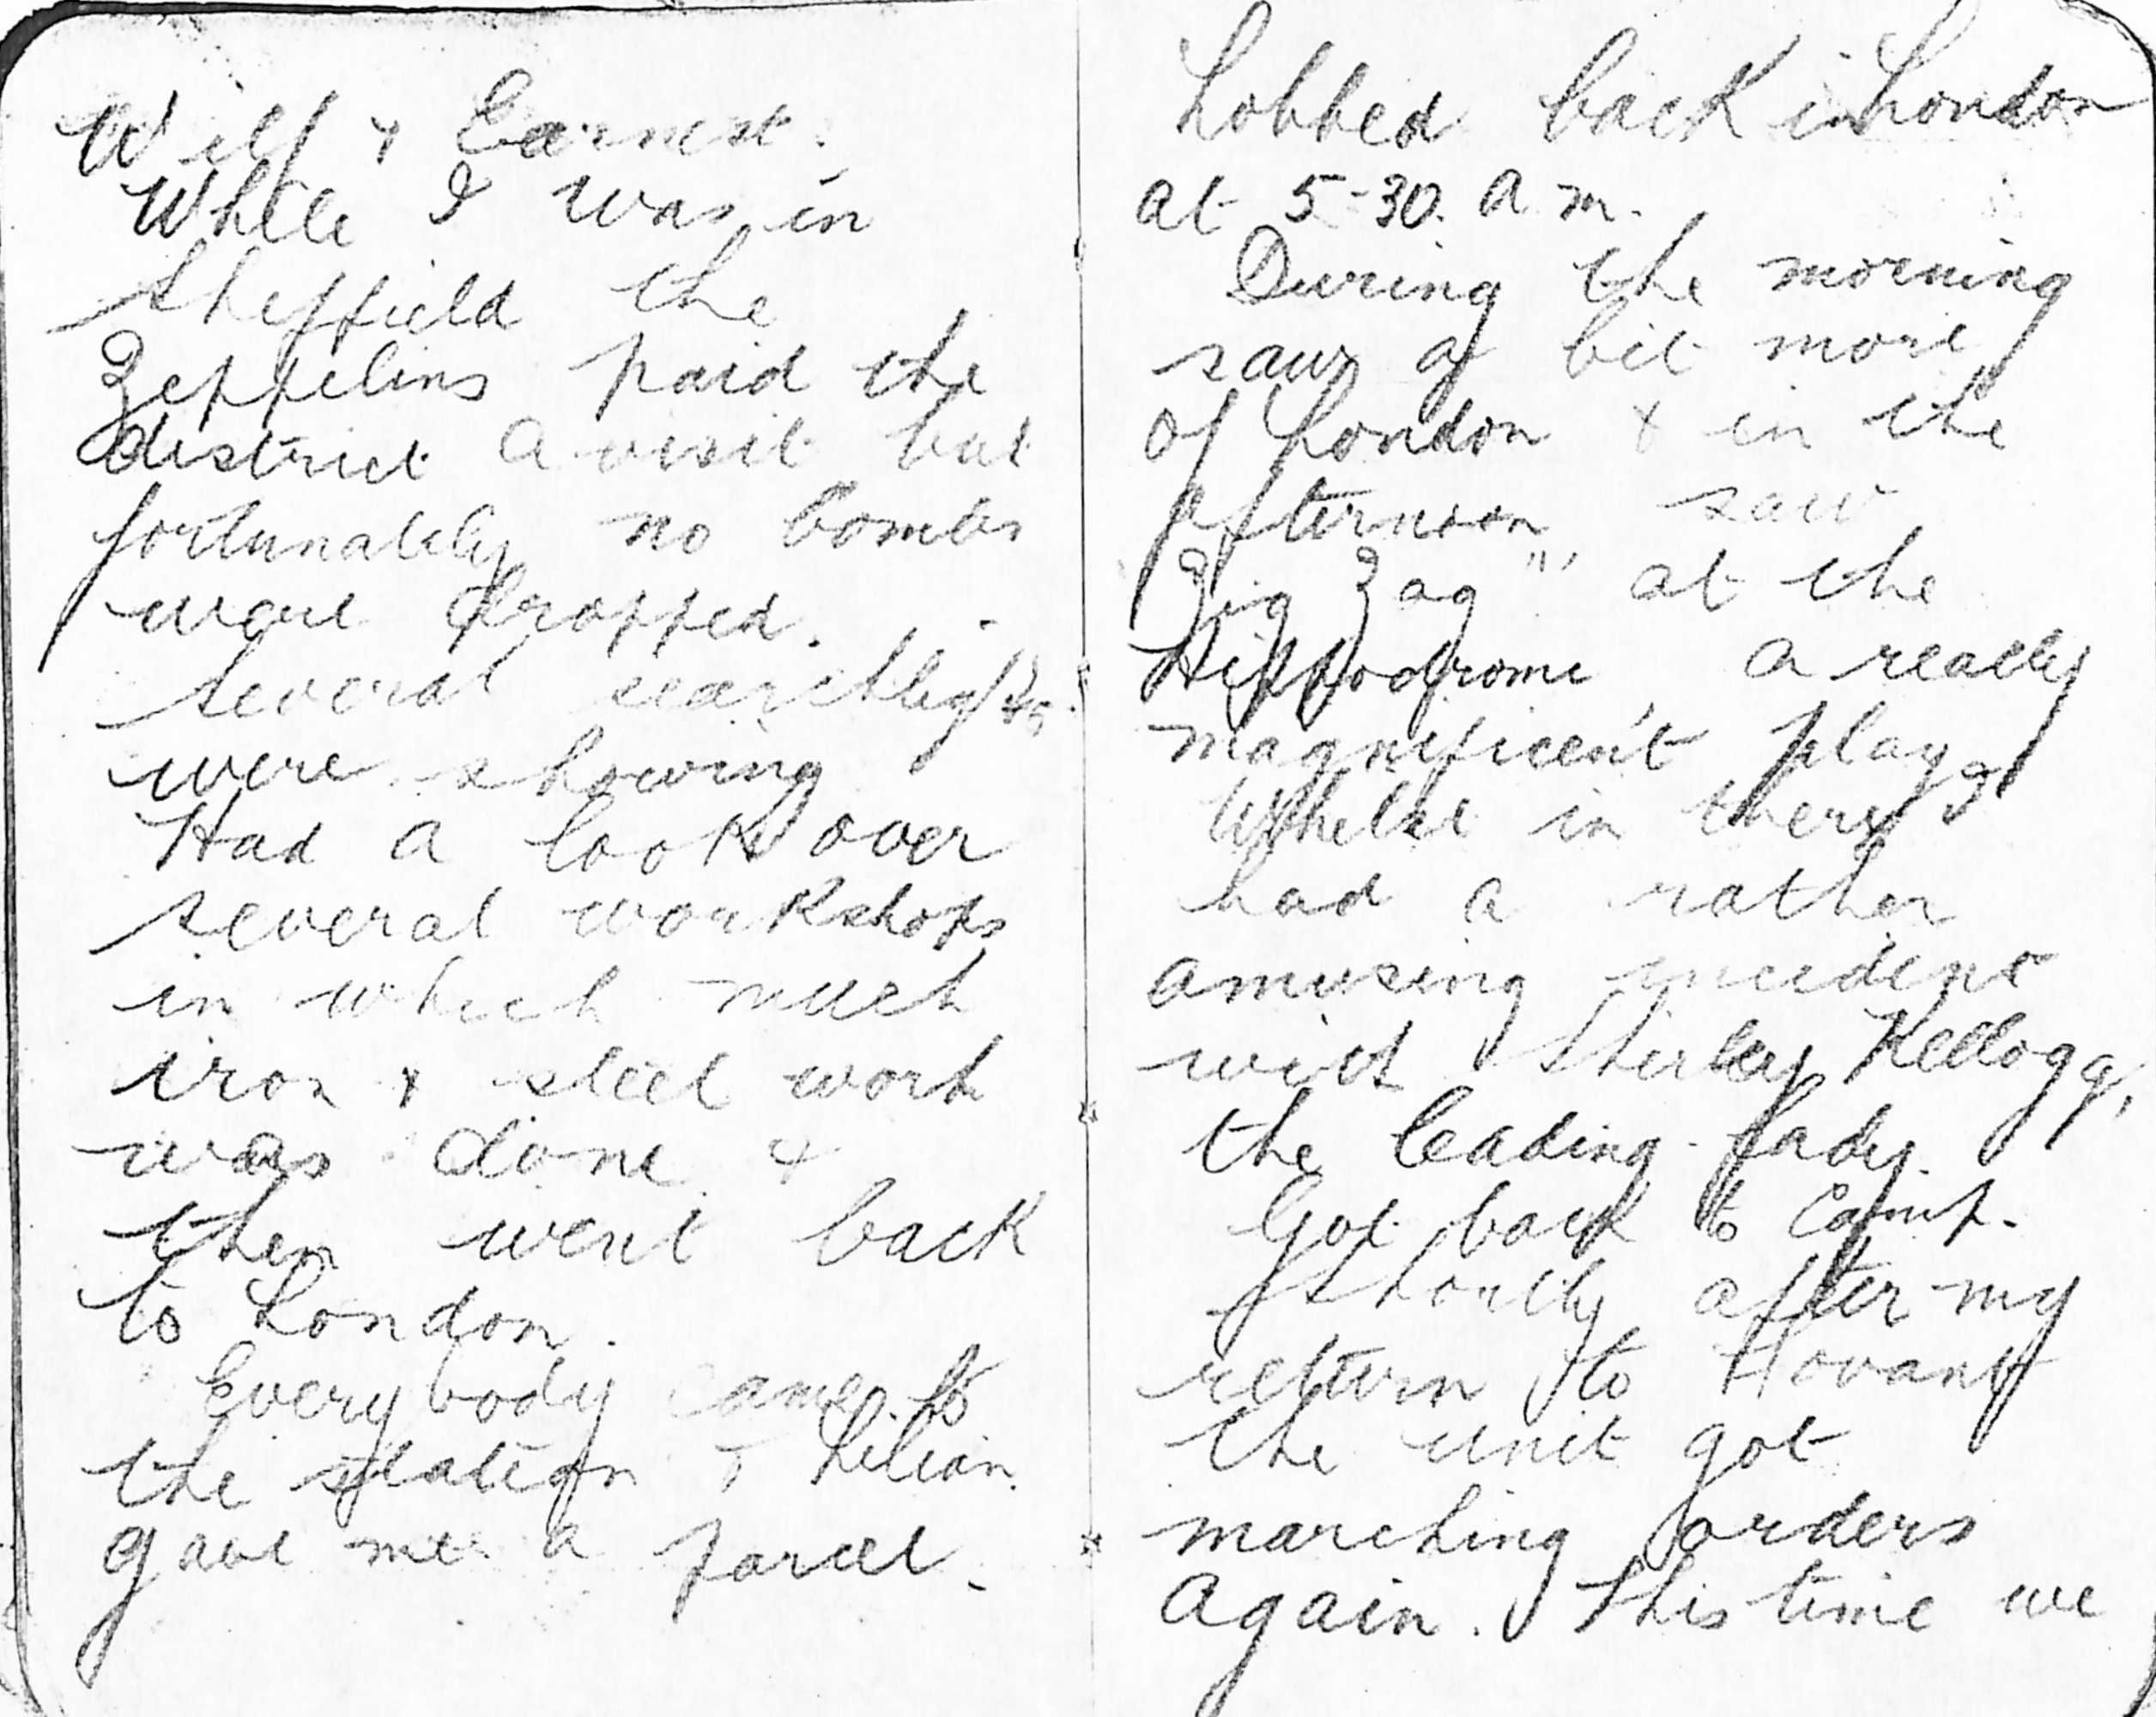 Wilf & Earnest.
While I was in
Sheffield the
Zeppelins paid the
district a visit but
fortunately no bombs
were dropped.
Several searchlights
were showing
Had a look over
several workshops
in which much
iron & steel work
was done &
then went back
to London.
Everybody came to
the station & Lilian
gave me a parcel.
Lobbed back in London
at 5-30. a.m.
During the morning
saw a bit more
of London & in the
afternoon saw
"Zig Zag", at the
Hippodrome, a really
magnificent play.
Whilst in there
had a rather
amusing incident
with Shirley Kellogg,
the leading lady.
Got back to Camp.
Shortly after my
return to Fovant
the unit got
marching orders
again. This time we